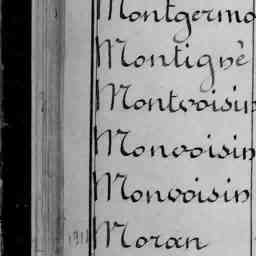 Montgermo
Montigné
Montvoisin
Monvoisin
Monvoisin
Moran